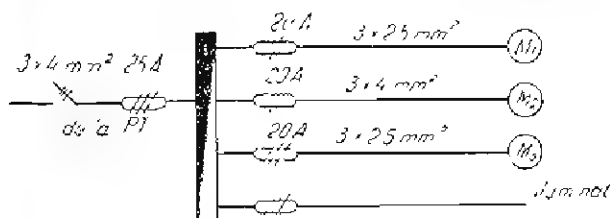 3×4 mm² 25A
de la P1
20A 3×25 mm²
M1
20A 3×4 mm²
M2
20A 3×25 mm²
M3